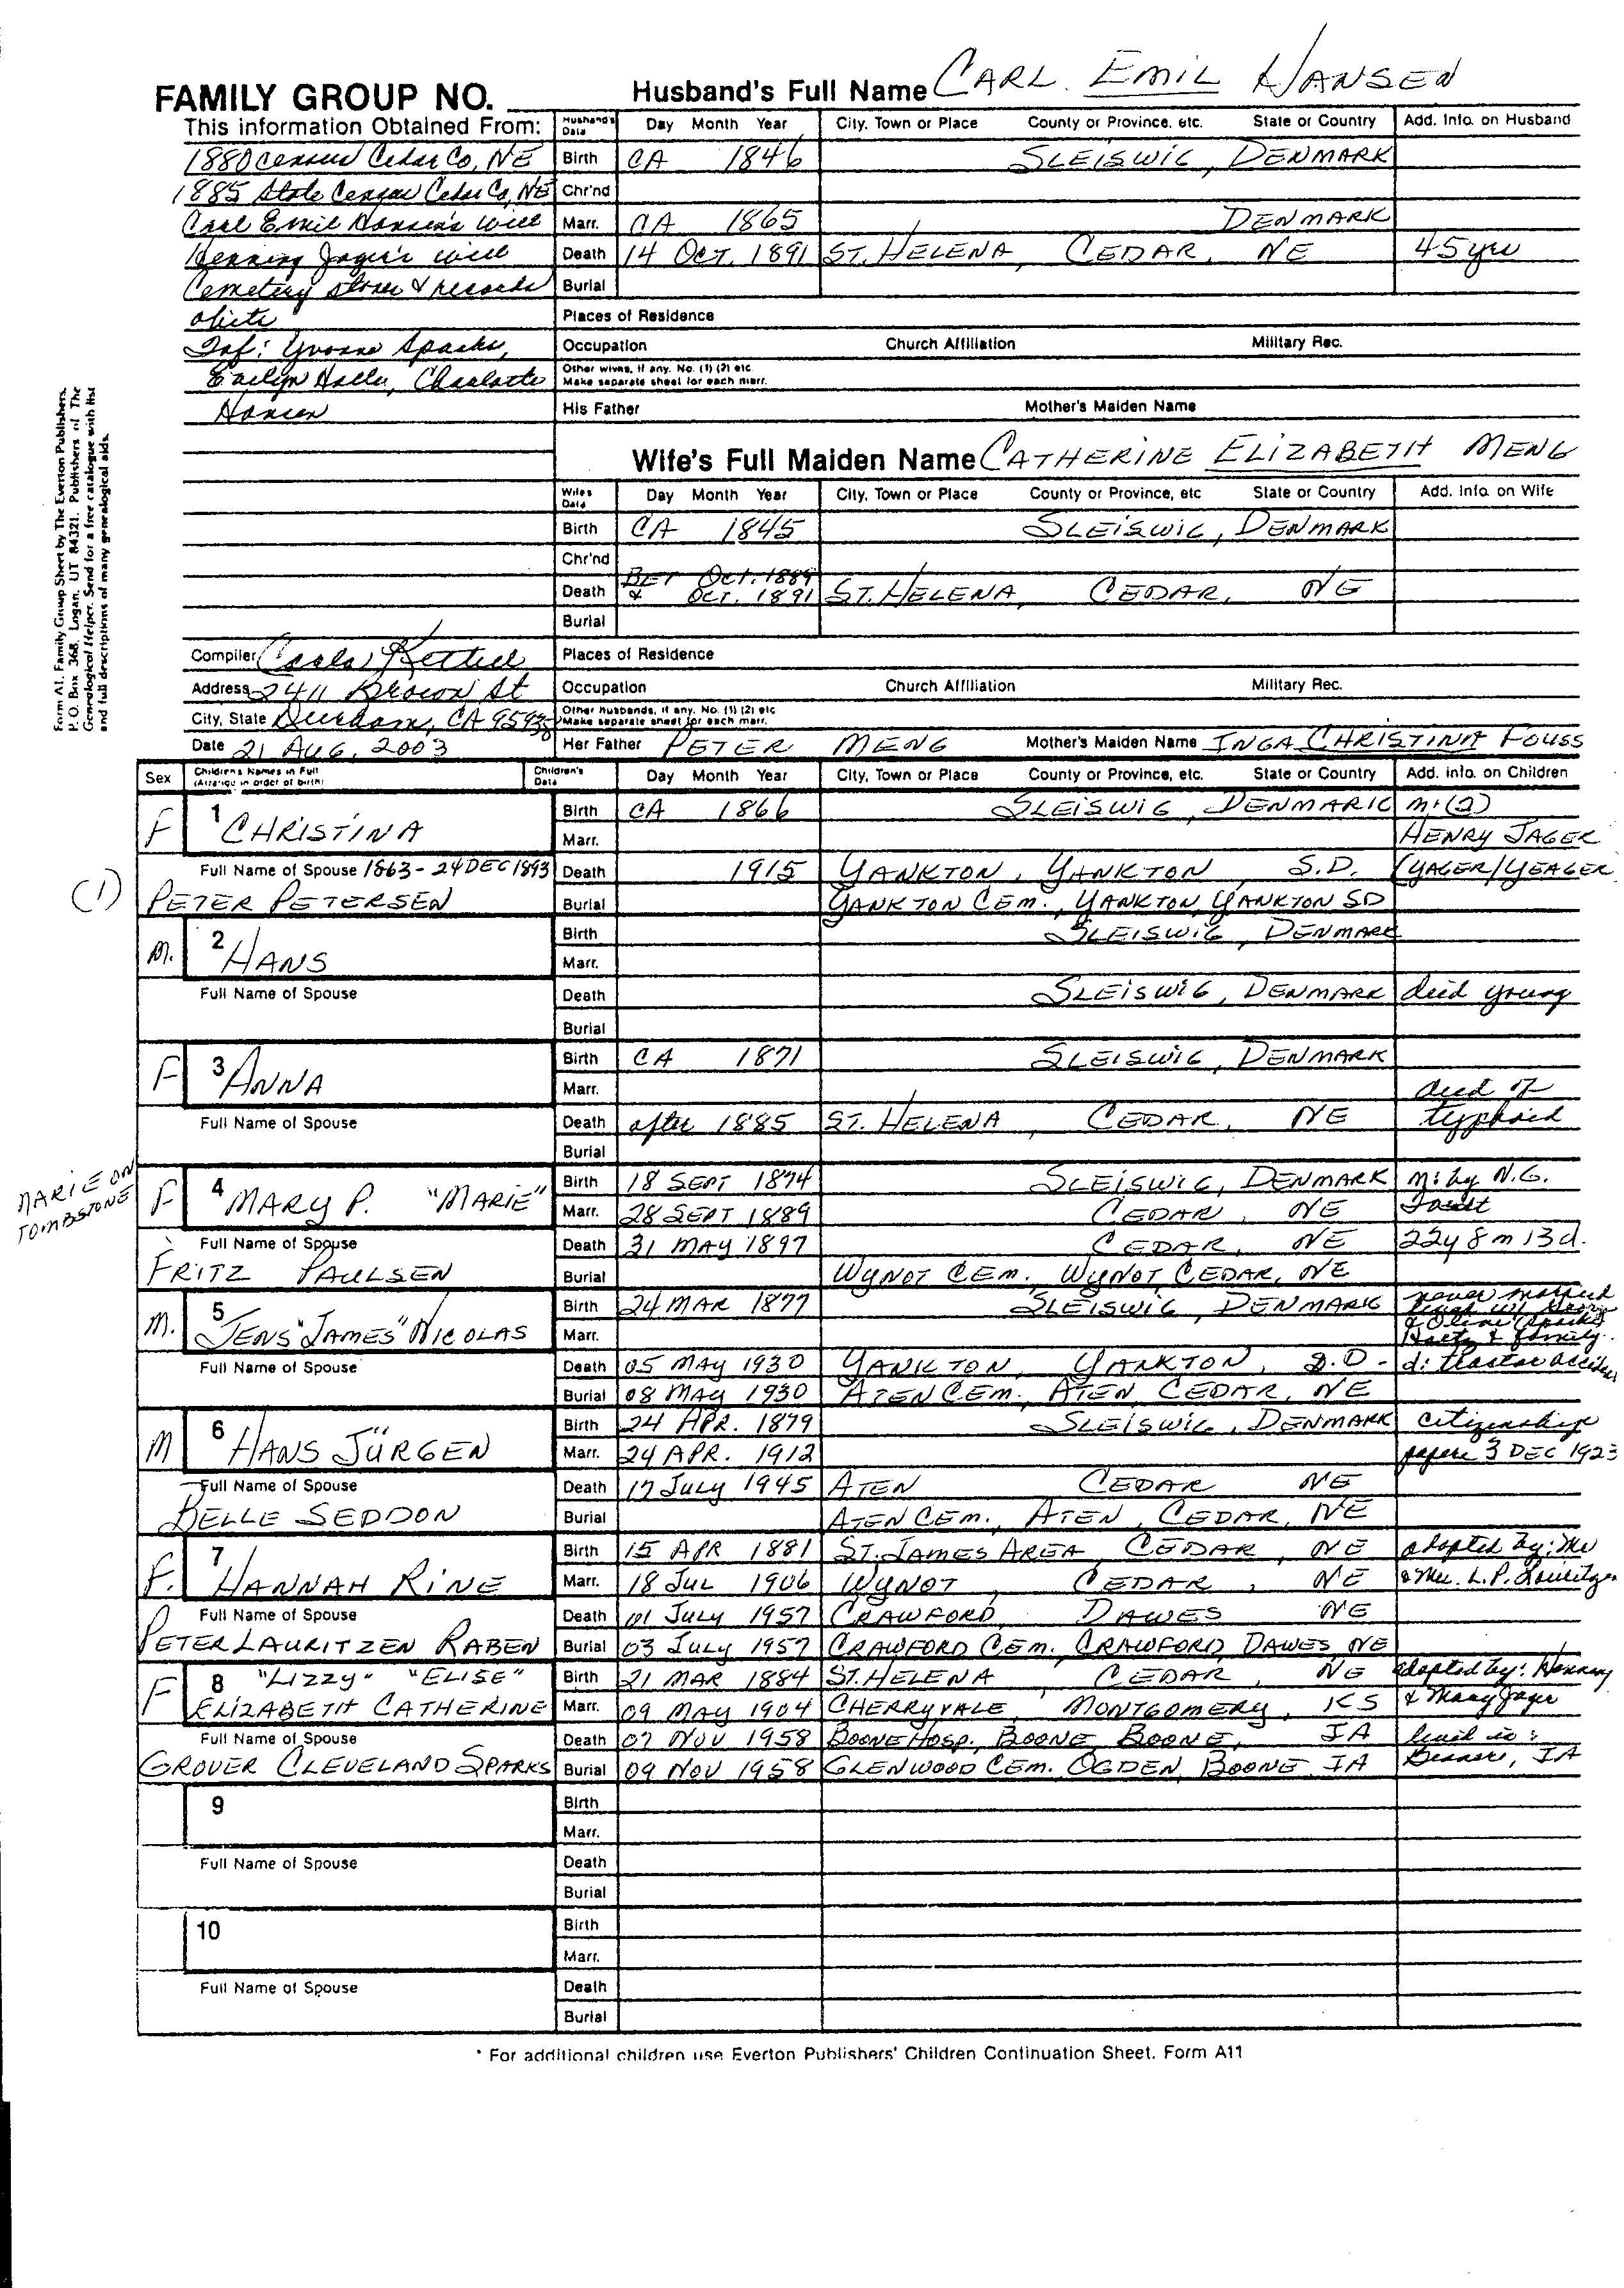 FAMILY GROUP NO.
Husband's Full Name CARL EMIL HANSEN
This information Obtained From:
Husband's Data Day Month Year City, Town or Place County or Province, etc. State or Country Add. Info. on Husband
1880 census Cedar Co, NE
Birth CA 1846 SLEISWIG, DENMARK
1885 State Census Cedar Co, NE
Chr'nd
Carl Emil Hansen's will
Marr. CA 1865 DENMARK
Henning Jager's will
Death 14 OCT. 1891 ST. HELENA, CEDAR, NE 45 yrs
Cemetery stones & records
Burial
obits
Places of Residence
Inf: Yvonne Sparks,
Occupation Church Affiliation Military Rec.
Hansen, Charlotte
Other wives, if any. No. (1) (2) etc. Make separate sheet for each marr.
Hansen
His Father Mother's Maiden Name
Wife's Full Maiden Name CATHERINE ELIZABETH MENG
Wife's Data Day Month Year City, Town or Place County or Province, etc State or Country Add. Info. on Wife
Birth CA 1845 SLEISWIG, DENMARK
Chr'nd
Death BET Oct. 1889 & OCT. 1891 ST. HELENA, CEDAR, NE
Burial
Compiler Carla
Places of Residence
Address 2411 Brown St
Occupation Church Affiliation Military Rec.
City, State Durham, CA 95938
Other husbands, if any. No. (1) (2) etc. Make separate sheet for each marr.
Date 21 AUG. 2003
Her Father PETER MENG Mother's Maiden Name INGA CHRISTINA FOUSS
Form A1. Family Group Sheet by The Everton Publishers,
P. O. Box 368, Logan, UT 84321. Publishers of The
Genealogical Helper. Send for a free catalogue with list
and full descriptions of many genealogical aids.
Sex Children's Names in Full (Arrange in order of birth) Children's Data Day Month Year City, Town or Place County or Province, etc. State or Country Add. info. on Children
F 1 CHRISTINA
Birth CA 1866 SLEISWIG, DENMARK m: (2)
Marr. HENRY JAGER
Full Name of Spouse 1863 - 24 DEC 1893
Death 1915 YANKTON, YANKTON S.D. (YAGER/YEAGER
(1) PETER PETERSEN
Burial YANKTON CEM., YANKTON, YANKTON SD
M. 2 HANS
Birth SLEISWIG, DENMARK
Marr.
Full Name of Spouse
Death SLEISWIG, DENMARK died young
Burial
F 3 ANNA
Birth CA 1871 SLEISWIG, DENMARK
Marr. died of
Full Name of Spouse
Death after 1885 ST. HELENA, CEDAR, NE typhoid
Burial
MARIE ON TOMBSTONE
F 4 MARY P. "MARIE"
Birth 18 SEPT 1874 SLEISWIG, DENMARK m: by N.G.
Marr. 28 SEPT 1889 CEDAR, NE
Full Name of Spouse
Death 31 MAY 1897 CEDAR, NE 22y 8m 13d.
FRITZ PAULSEN
Burial WYNOT CEM., WYNOT, CEDAR, NE
M. 5 JENS "JAMES" NICOLAS
Birth 24 MAR 1877 SLEISWIG, DENMARK never married
Marr. & family.
Full Name of Spouse
Death 05 MAY 1930 YANKTON, YANKTON, S.D. - d: tractor acciden
Burial 08 MAY 1930 ATEN CEM., ATEN, CEDAR, NE
M 6 HANS JÜRGEN
Birth 24 APR. 1879 SLEISWIG, DENMARK citizenship
Marr. 24 APR. 1912 papers 3 DEC 1923
Full Name of Spouse
Death 17 JULY 1945 ATEN CEDAR NE
BELLE SEDDON
Burial ATEN CEM., ATEN, CEDAR, NE
F. 7 HANNAH RINE
Birth 15 APR 1881 ST. JAMES AREA, CEDAR, NE adopted by: Mr
Marr. 18 JUL 1906 WYNOT, CEDAR, NE & Mrs. L.P.
Full Name of Spouse
Death 01 JULY 1957 CRAWFORD, DAWES NE
PETER LAURITZEN RABEN
Burial 03 JULY 1957 CRAWFORD CEM. CRAWFORD, DAWES NE
F 8 "LIZZY" "ELISE"
ELIZABETH CATHERINE
Birth 21 MAR 1884 ST. HELENA, CEDAR, NE adopted by: Henning
Marr. 09 MAY 1904 CHERRYVALE, MONTGOMERY, KS & Mary Jager
Full Name of Spouse
Death 07 NOV 1958 BOONE HOSP., BOONE, BOONE, IA lived in:
GROVER CLEVELAND SPARKS
Burial 09 NOV 1958 GLENWOOD CEM. OGDEN, BOONE, IA IA
9
Birth
Marr.
Full Name of Spouse
Death
Burial
10
Birth
Marr.
Full Name of Spouse
Death
Burial
* For additional children use Everton Publishers' Children Continuation Sheet. Form A11